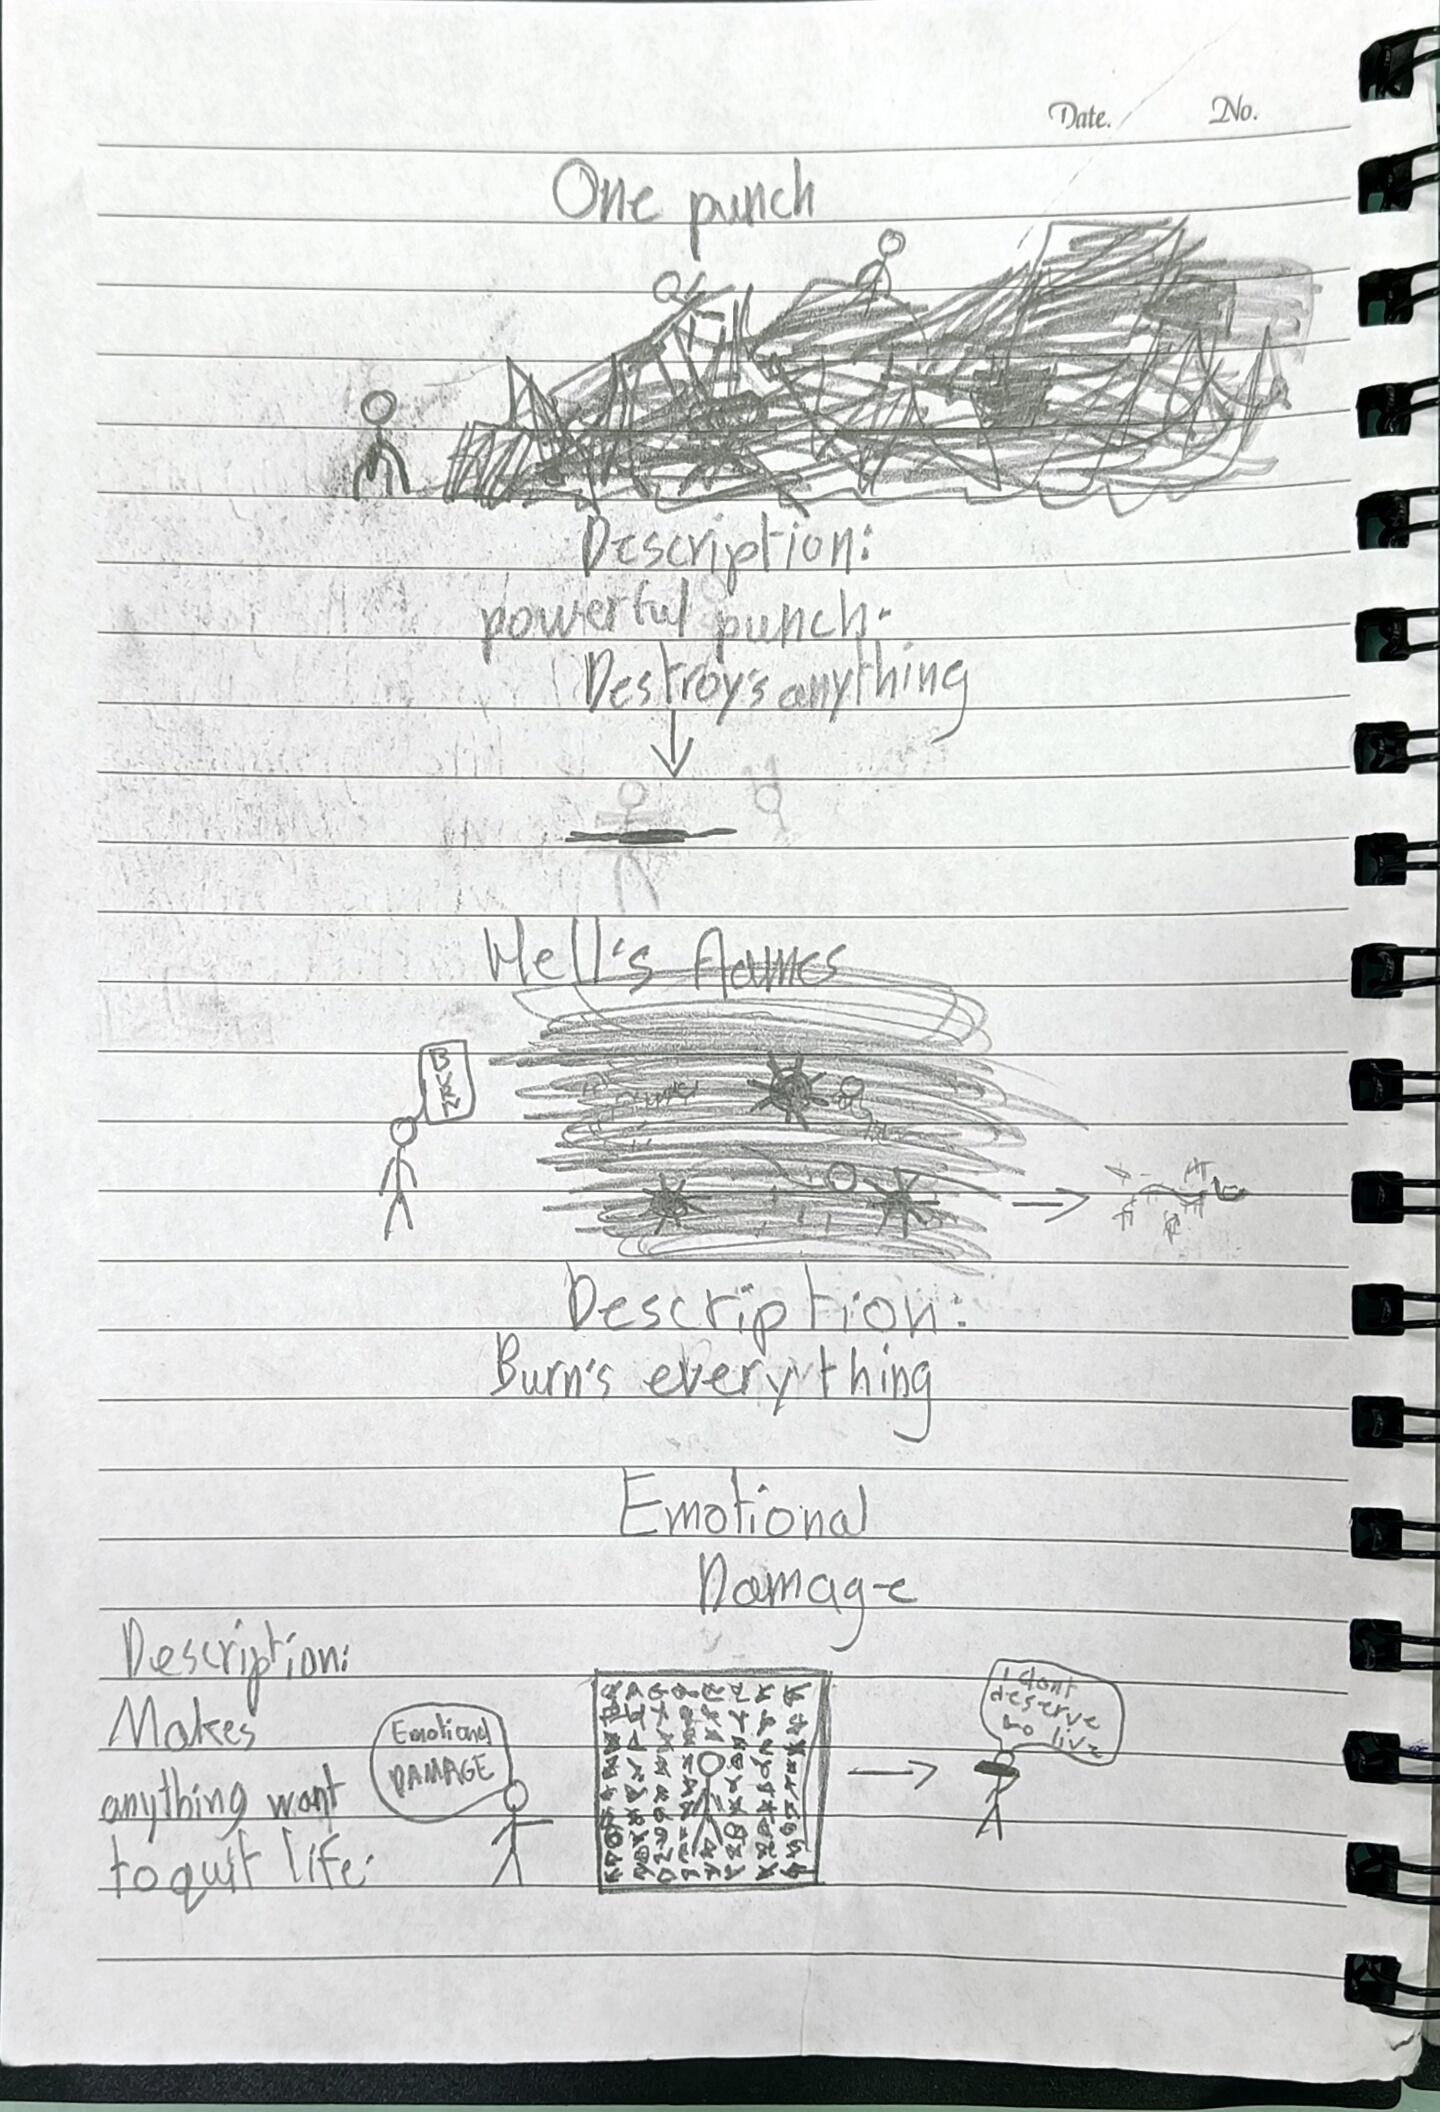 Date. No.
One punch
Description:
powerful punch.
Destroy's anything
Hell's flames
BURN
Description:
Burn's everything
Emotional
Damage
Description:
Makes
anything want
to quit life.
Emotional
DAMAGE
I dont
deserve
to live